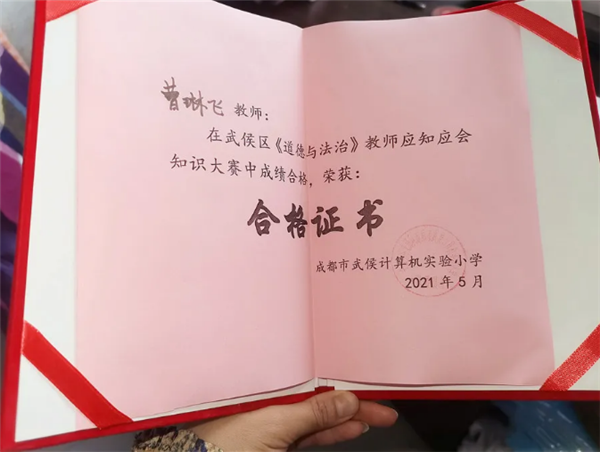 曹琳飞 教师：
在武侯区《道德与法治》教师应知应会
知识大赛中成绩合格，荣获：
合格证书
成都市武侯计算机实验小学
2021 年 5 月